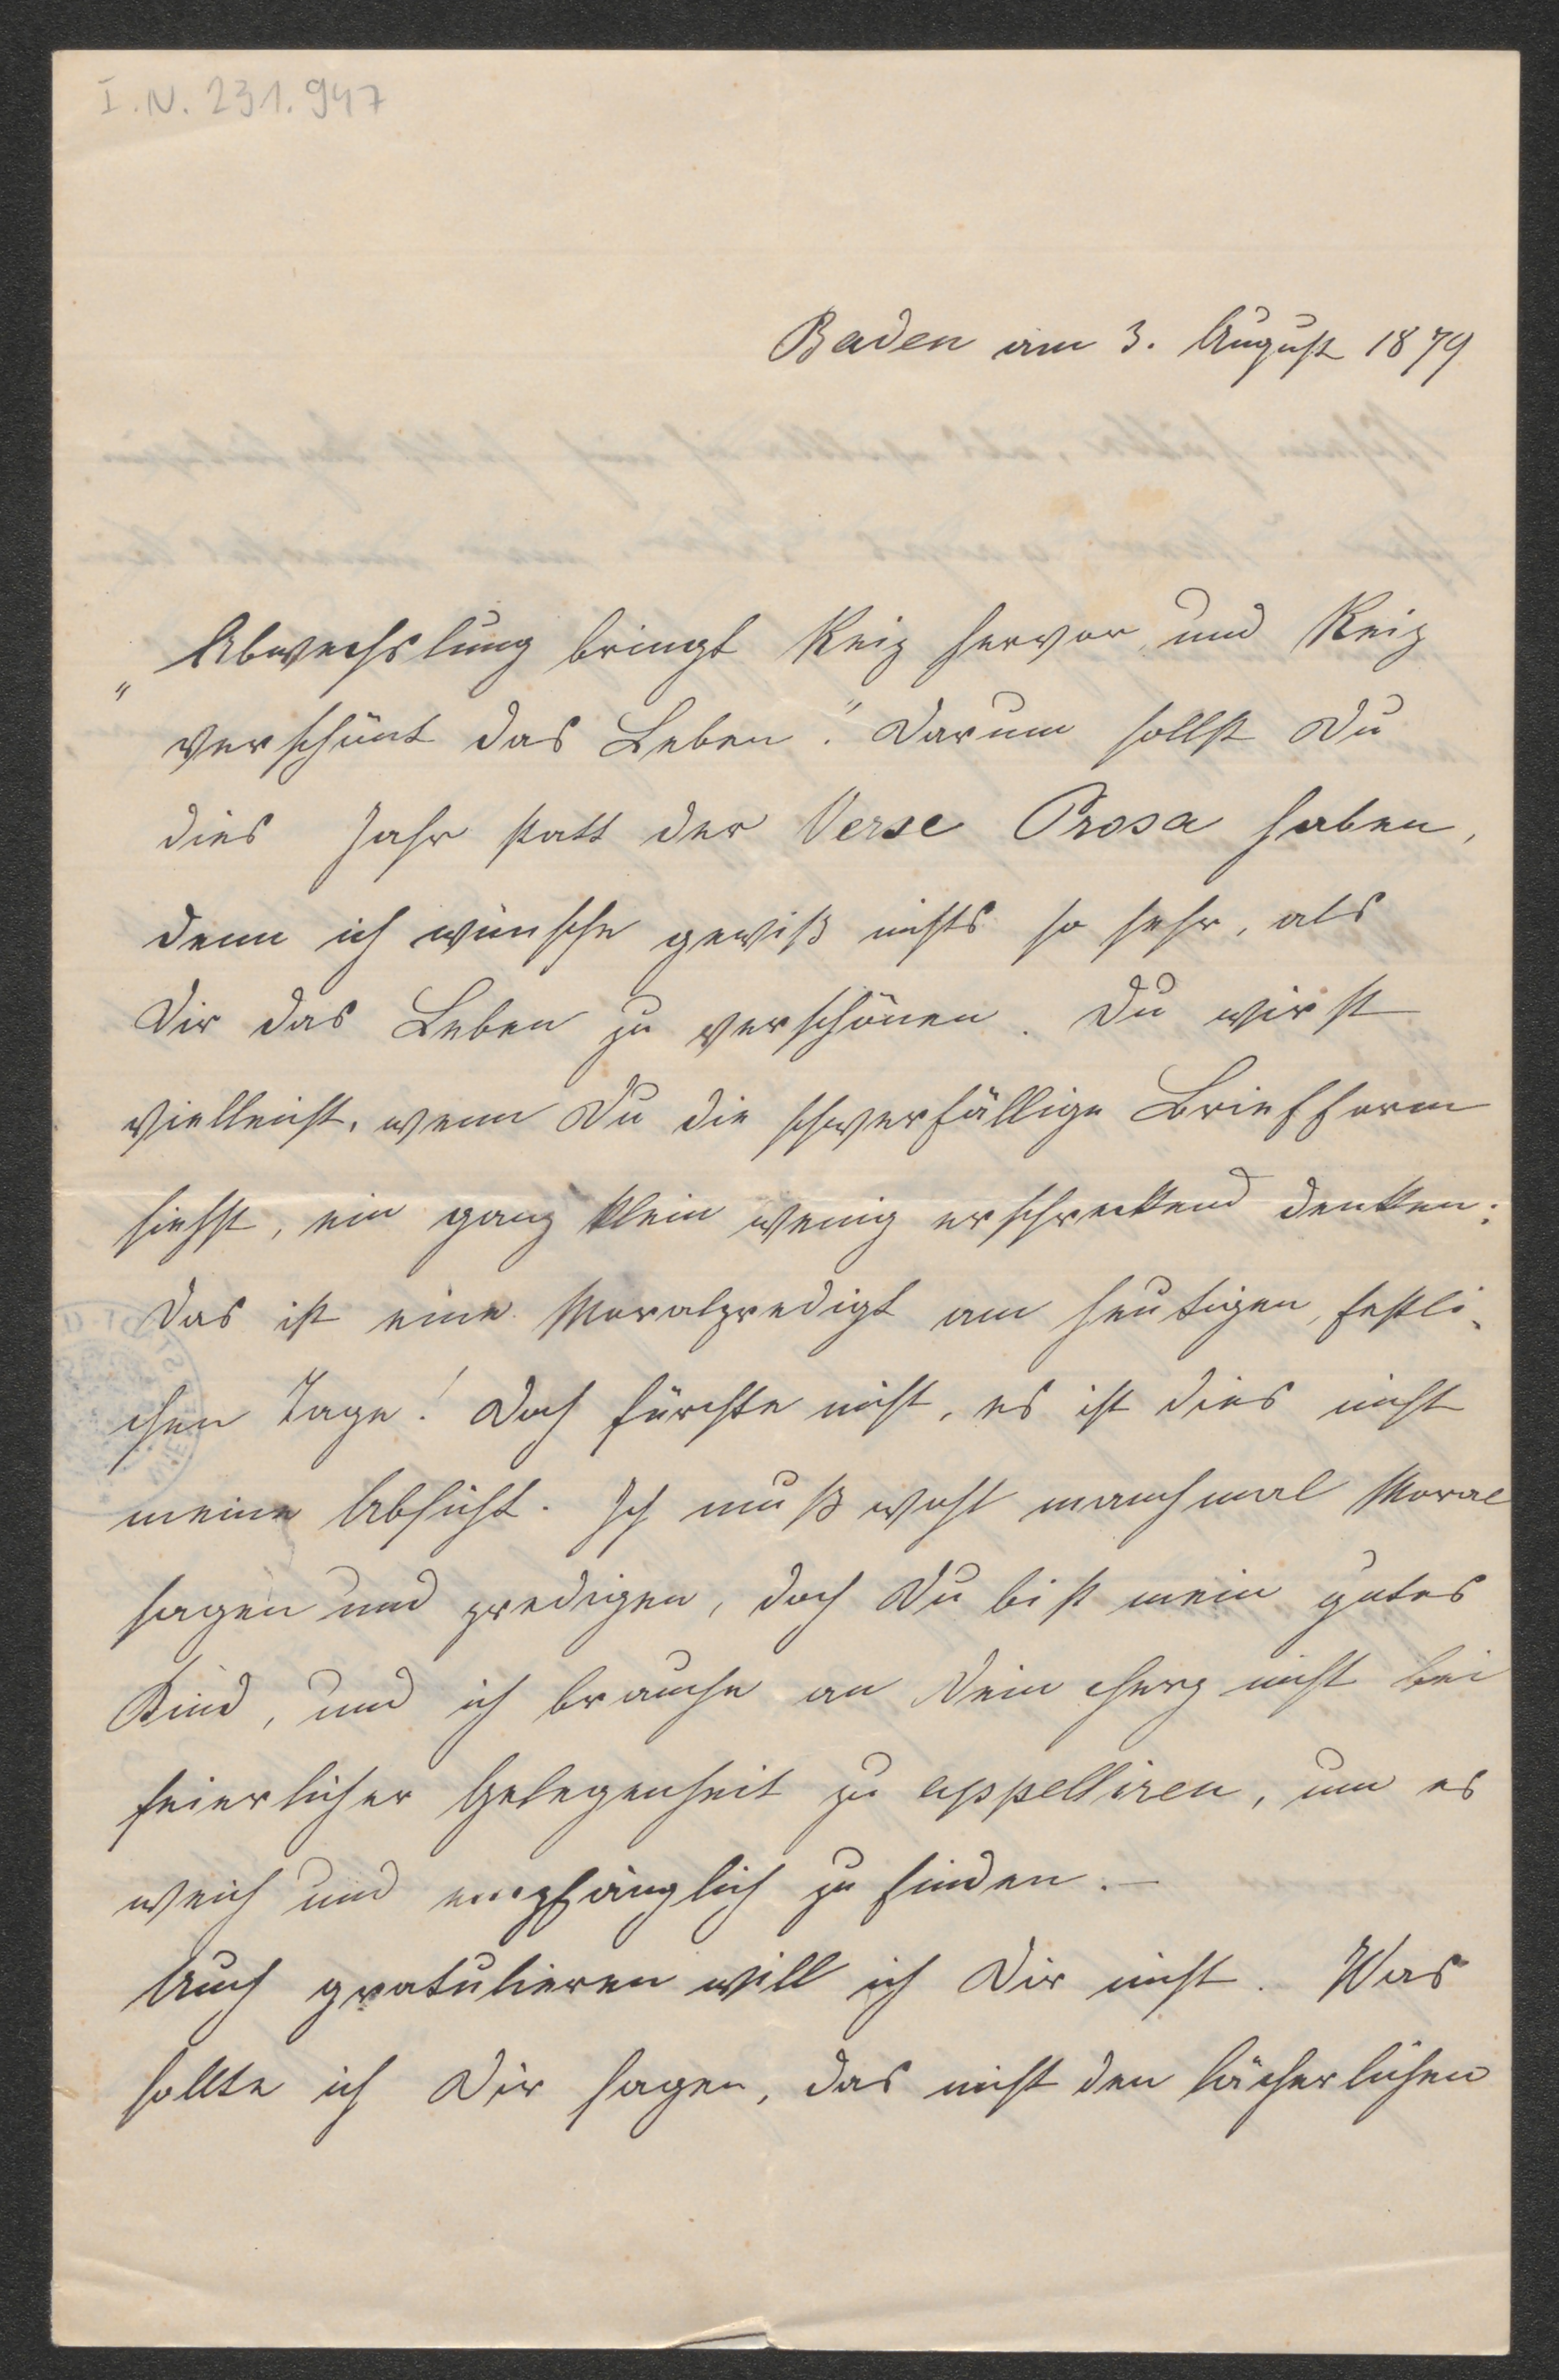 I.N. 231.947
Baden am 3. August 1879
„Abwechslung bringt Reiz hervor und Reiz
verschönt das Leben." Darum sollst Du
dies Jahr statt der Verse Prosa haben,
denn ich wünsche gewiß nichts so sehr, als
Dir das Leben zu verschönen. Du wirst
vielleicht, wenn Du die schwerfällige Briefform
siehst, ein ganz klein wenig erschreckend denken:
Das ist eine Moralpredigt am heutigen, festli-
chen Tage! Doch fürchte nicht, es ist dies nicht
meine Absicht. Ich muß wohl manchmal Moral
sagen und predigen, doch Du bist mein gutes
Kind, und ich brauche an Dein Herz nicht bei
feierlicher Gelegenheit zu appelliren, um es
weich und empfänglich zu finden. —
Auch gratulieren will ich Dir nicht. Was
sollte ich Dir sagen, das nicht den lächerlichen